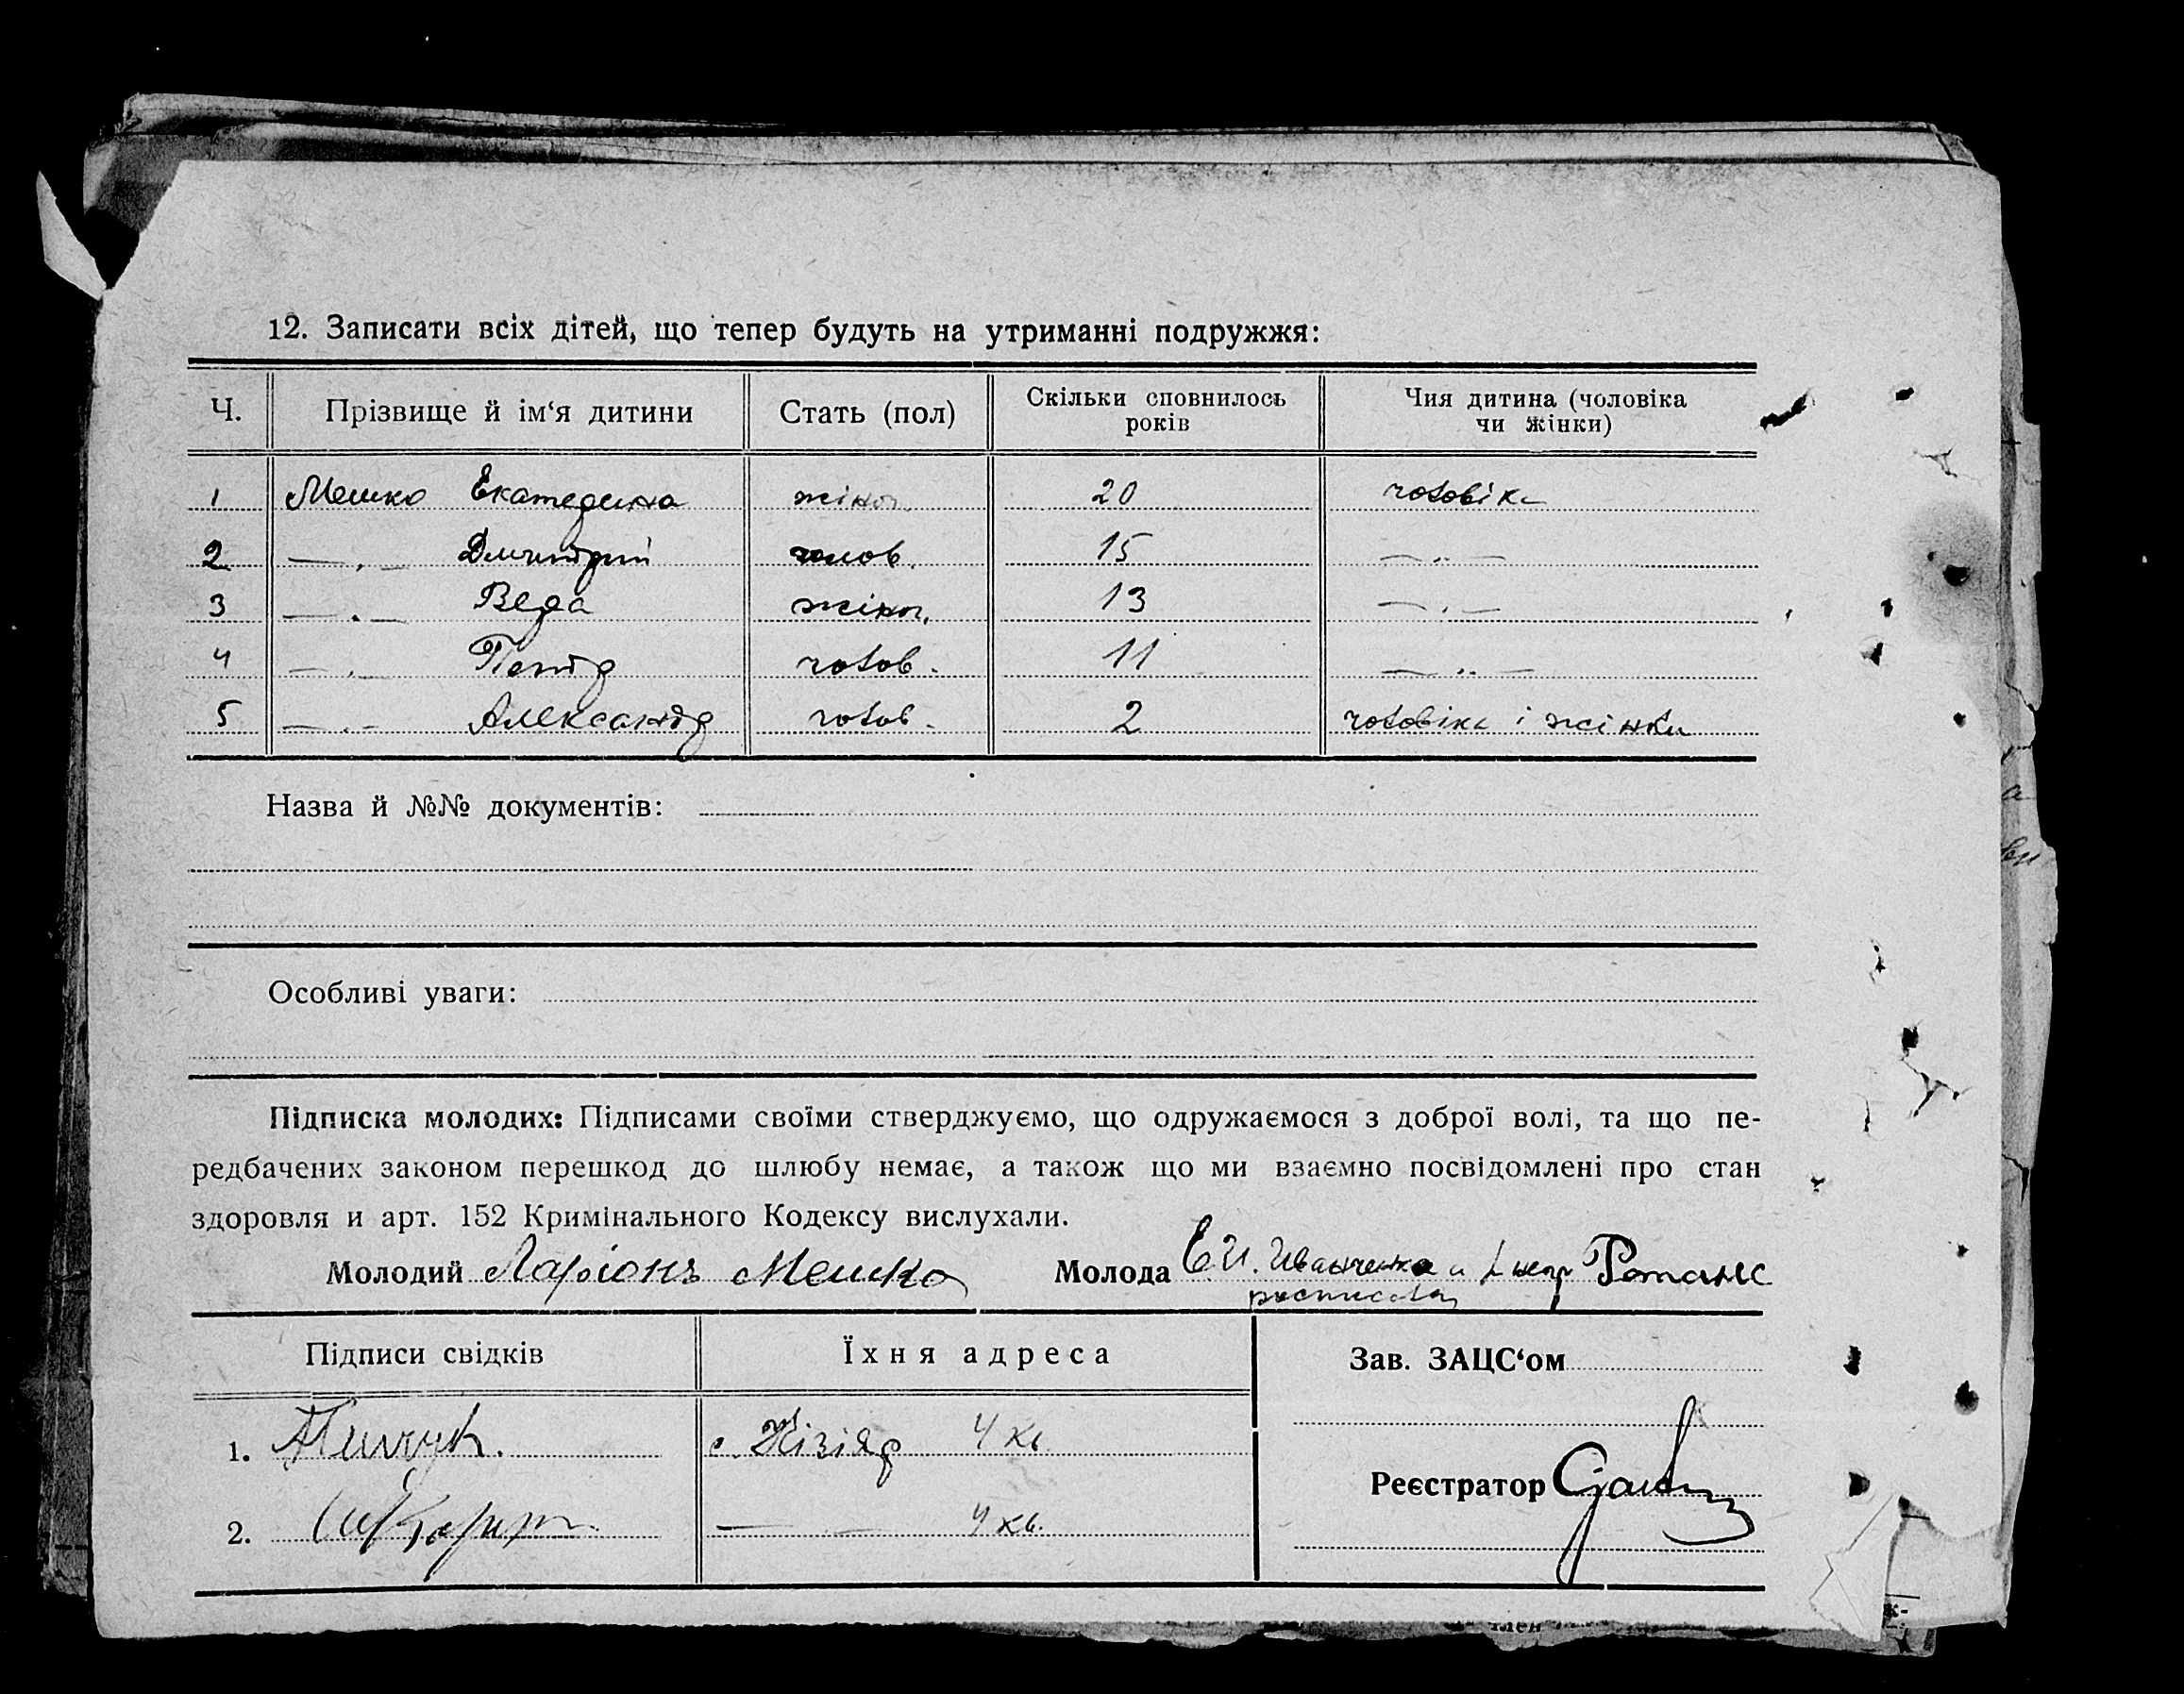 12. Записати всіх дітей, що тепер будуть на утриманні подружжя:
Ч. Прізвище й ім‘я дитини Стать (пол) Скільки сповнилось років Чия дитина (чоловіка чи жінки)
1 Мешко Екатерина жіноч. 20 чоловіка
2 —„— Дмитрий чолов. 15 —„—
3 —„— Вера жіноч. 13 —„—
4 —„— Петр чолов. 11 —„—
5 —„— Александр чолов. 2 чоловіка і жінки
Назва й №№ документів:
Особливі уваги:
Підписка молодих: Підписами своїми стверджуємо, що одружаємося з доброї волі, та що пе-
редбачених законом перешкод до шлюбу немає, а також що ми взаємно посвідомлені про стан
здоровля и арт. 152 Кримінального Кодексу вислухали.
Молодий Ларіонъ Мешко Молода Е. И. Иванченкова
Підписи свідків Їхня адреса Зав. ЗАЦС‘ом
1. с. Кізіяр 4 кв
Реєстратор
2. —„— 4 кв.